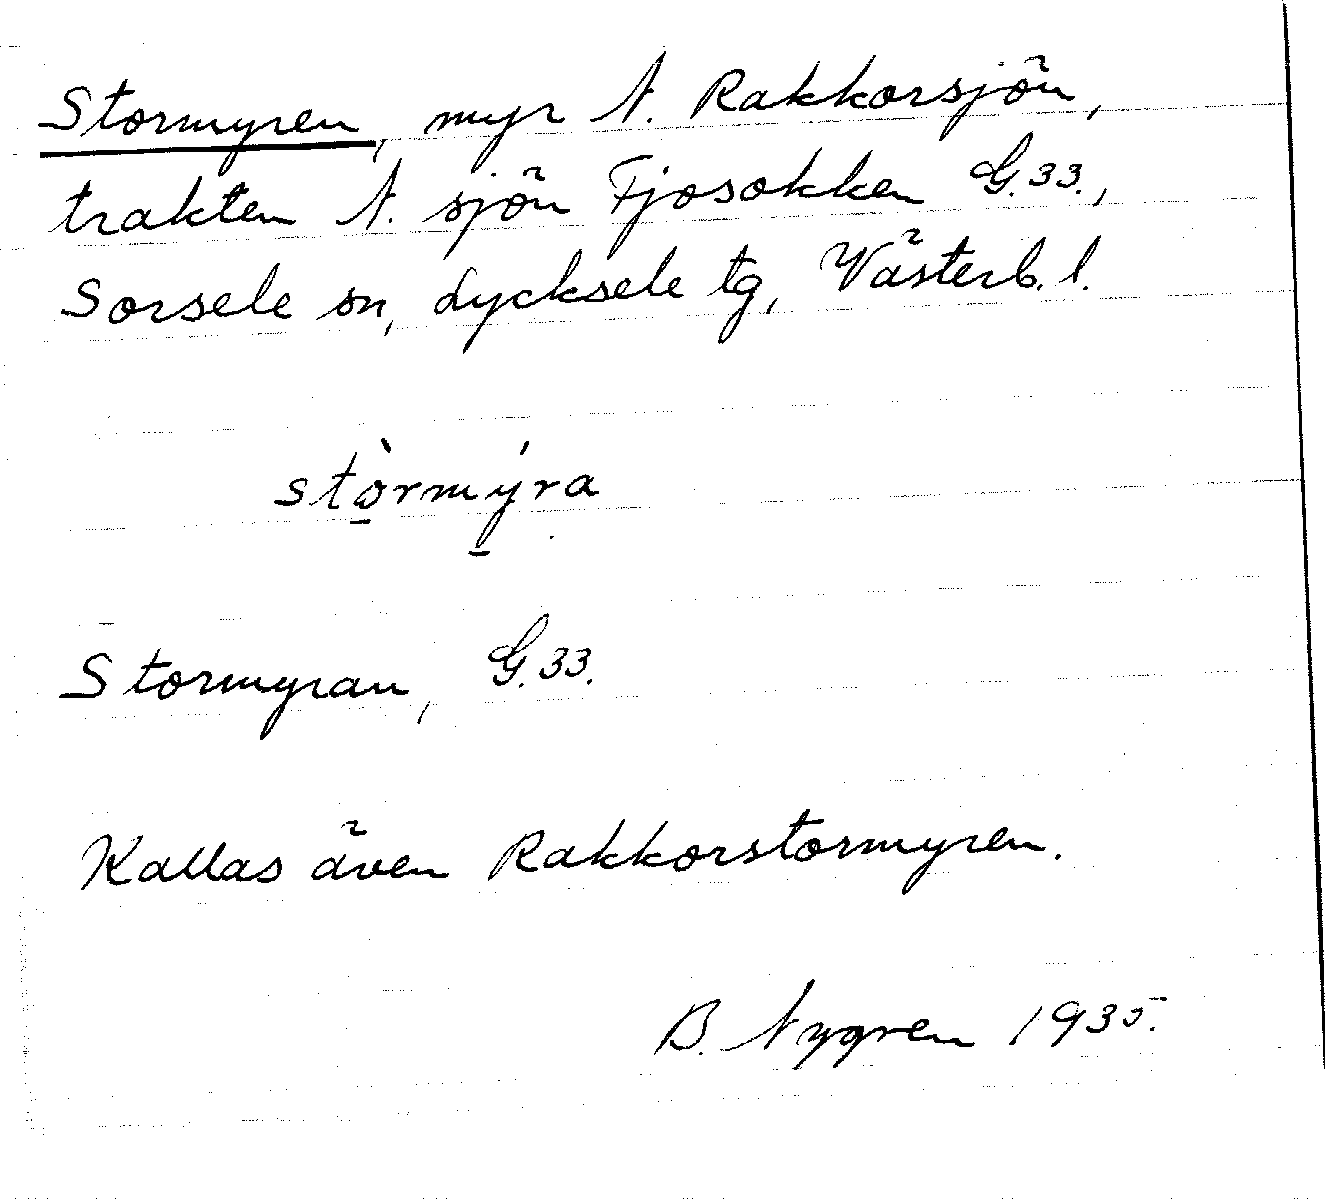 Stormyren, myr N. Rakkorsjön,
trakten N. sjön Fjosokken G.33.,
Sorsele sn, Lycksele tg, Västerb. l.
stò̱rmý̱ra
Stormyran, G.33.
Kallas även Rakkorstormyren.
B. Nygren 1935.